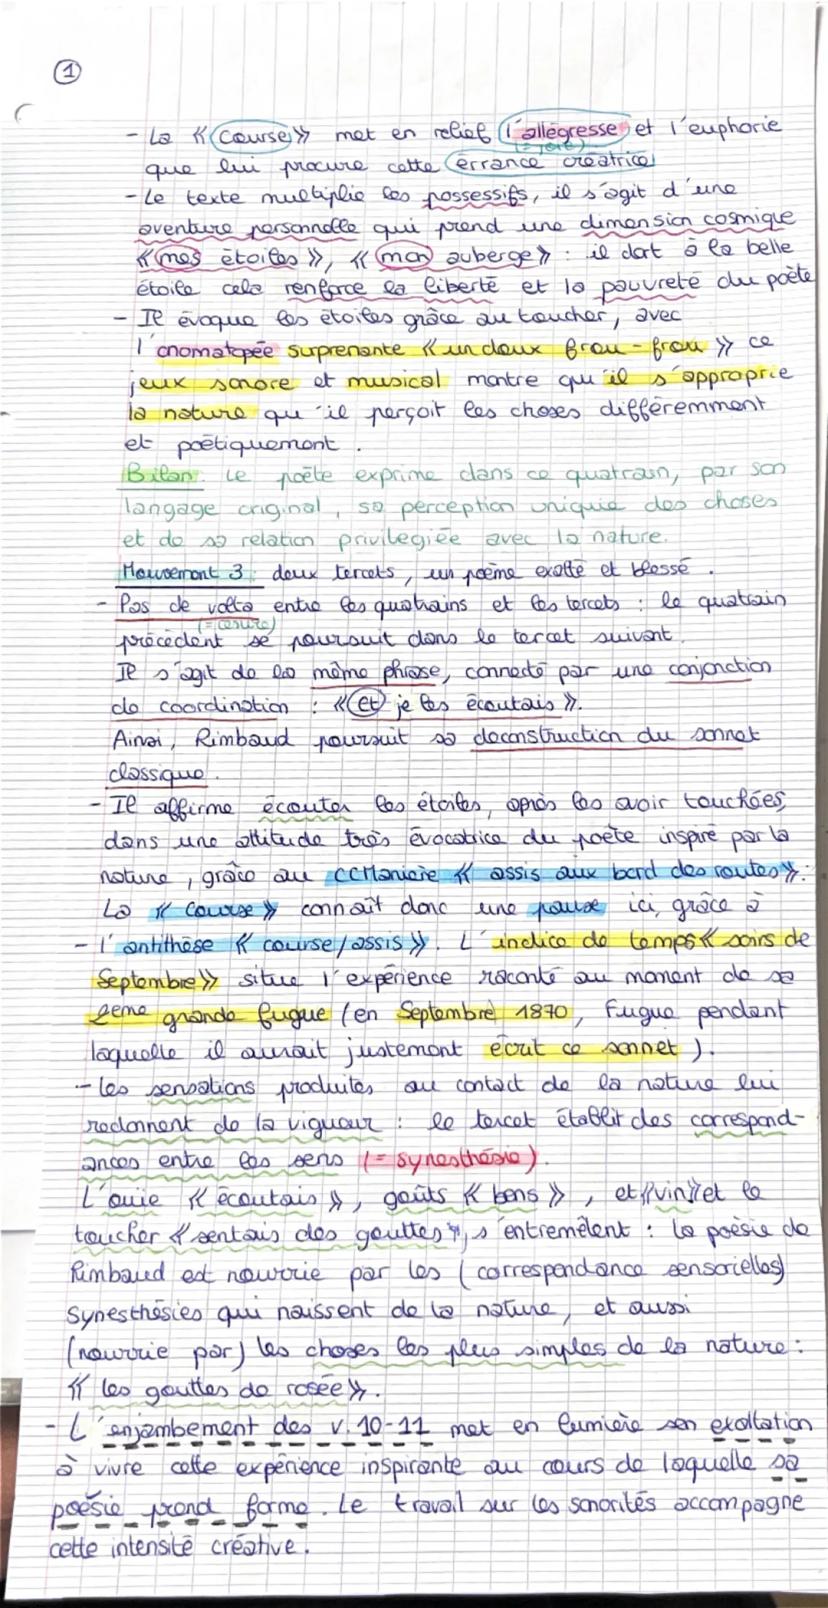 1
- La « Course » met en relief l'allégresse et l'euphorie
(= joie)
que lui procure cette errance créatrice
- Le texte multiplie les possessifs, il s'agit d'une
aventure personnelle qui prend une dimension cosmique
« mes étoiles », « mon auberge » : il dort à la belle
étoile cela renforce la liberté et la pauvreté du poète
- Il évoque les étoiles grâce au toucher, avec
l'onomatopée suprenante « un doux frou-frou » ce
jeux sonore et musical montre qu'il s'approprie
la nature qu'il perçoit les choses différemment
et poétiquement.
Bilan: Le poète exprime dans ce quatrain, par son
langage original, sa perception unique des choses
et de sa relation privilegiée avec la nature.
Mouvement 3 : deux tercets, un poème exalté et blessé.
- Pas de volta entre les quatrains et les tercets : le quatrain
(= césure)
précédent se poursuit dans le tercet suivant.
Il s'agit de la même phrase, connecté par une conjonction
de coordination : « Et je les écoutais ».
Ainsi, Rimbaud poursuit sa deconstruction du sonnet
classique.
- Il affirme écouter les étoiles, après les avoir touchées,
dans une attitude très évocatrice du poète inspiré par la
nature, grâce au CCManière « assis aux bord des routes » :
La « Course » connaît donc une pause ici, grâce à
- l'antithèse « course/assis ». L'indice de temps « soirs de
Septembre » situe l'expérience raconté au moment de sa
2eme grande fugue (en Septembre 1870, Fugue pendant
laquelle il aurait justement écrit ce sonnet).
- Les sensations produites au contact de la nature lui
redonnent de la vigueur : le tercet établit des correspond-
ances entre les sens (= synesthésie).
L'ouïe « écoutais », goûts « bons », et « vin » et le
toucher « sentais des gouttes », s'entremêlent : la poésie de
Rimbaud est nourrie par les (correspondance sensorielles)
synesthésies qui naissent de la nature, et aussi
(nourrie par) les choses les plus simples de la nature :
« les gouttes de rosée ».
- L'enjambement des v. 10-11 met en lumière son exaltation
à vivre cette expérience inspirante au cours de laquelle sa
poésie prend forme. Le travail sur les sonorités accompagne
cette intensité créative.